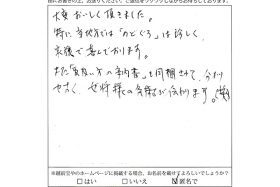 大変おいしく頂きました。
特に当地方では「のどぐろ」は珍しく、
家族で喜んでおります。
また「召し上がり方の案内書」も同梱されて、分かり
やすく、女将様の気持が伝わります。
※越前宝やのホームページに掲載する場合、お名前を載せてよろしいでしょうか?
□はい □いいえ ☑匿名で